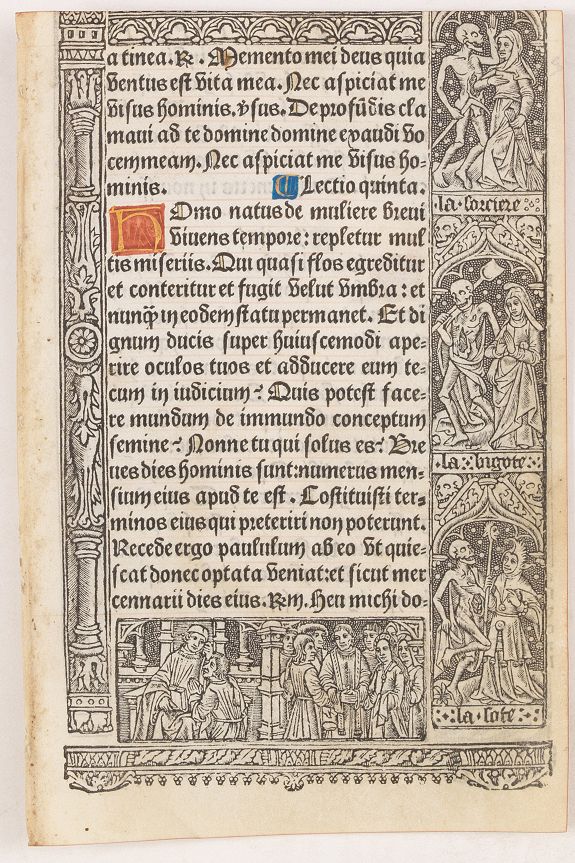 a tinea. ℟. Memento mei deus quia
ventus est vita mea. Nec aspiciat me
visus hominis. ℣sus. De profūdis cla
mavi ad te domine domine exaudi vo
cem meam. Nec aspiciat me visus ho-
minis. ¶ Lectio quinta.
Homo natus de muliere brevi
vivens tempore: repletur mul
tis miseriis. Qui quasi flos egreditur
et conteritur et fugit velut vmbra: et
nunq̄ in eodem statu permanet. Et di
gnum ducis super huiuscemodi ape-
rire oculos tuos et adducere eum te-
cum in iudicium? Quis potest face-
re mundum de immundo conceptum
semine? Nonne tu qui solus es? Bre
ues dies hominis sunt: numerus men-
sium eius apud te est. Costituisti ter-
minos eius qui preteriri non poterunt.
Recede ergo paululum ab eo vt quie-
scat donec optata veniat: et sicut mer
cennarii dies eius. ℟m. Heu michi do-
la sorciere
la bigote
la sote